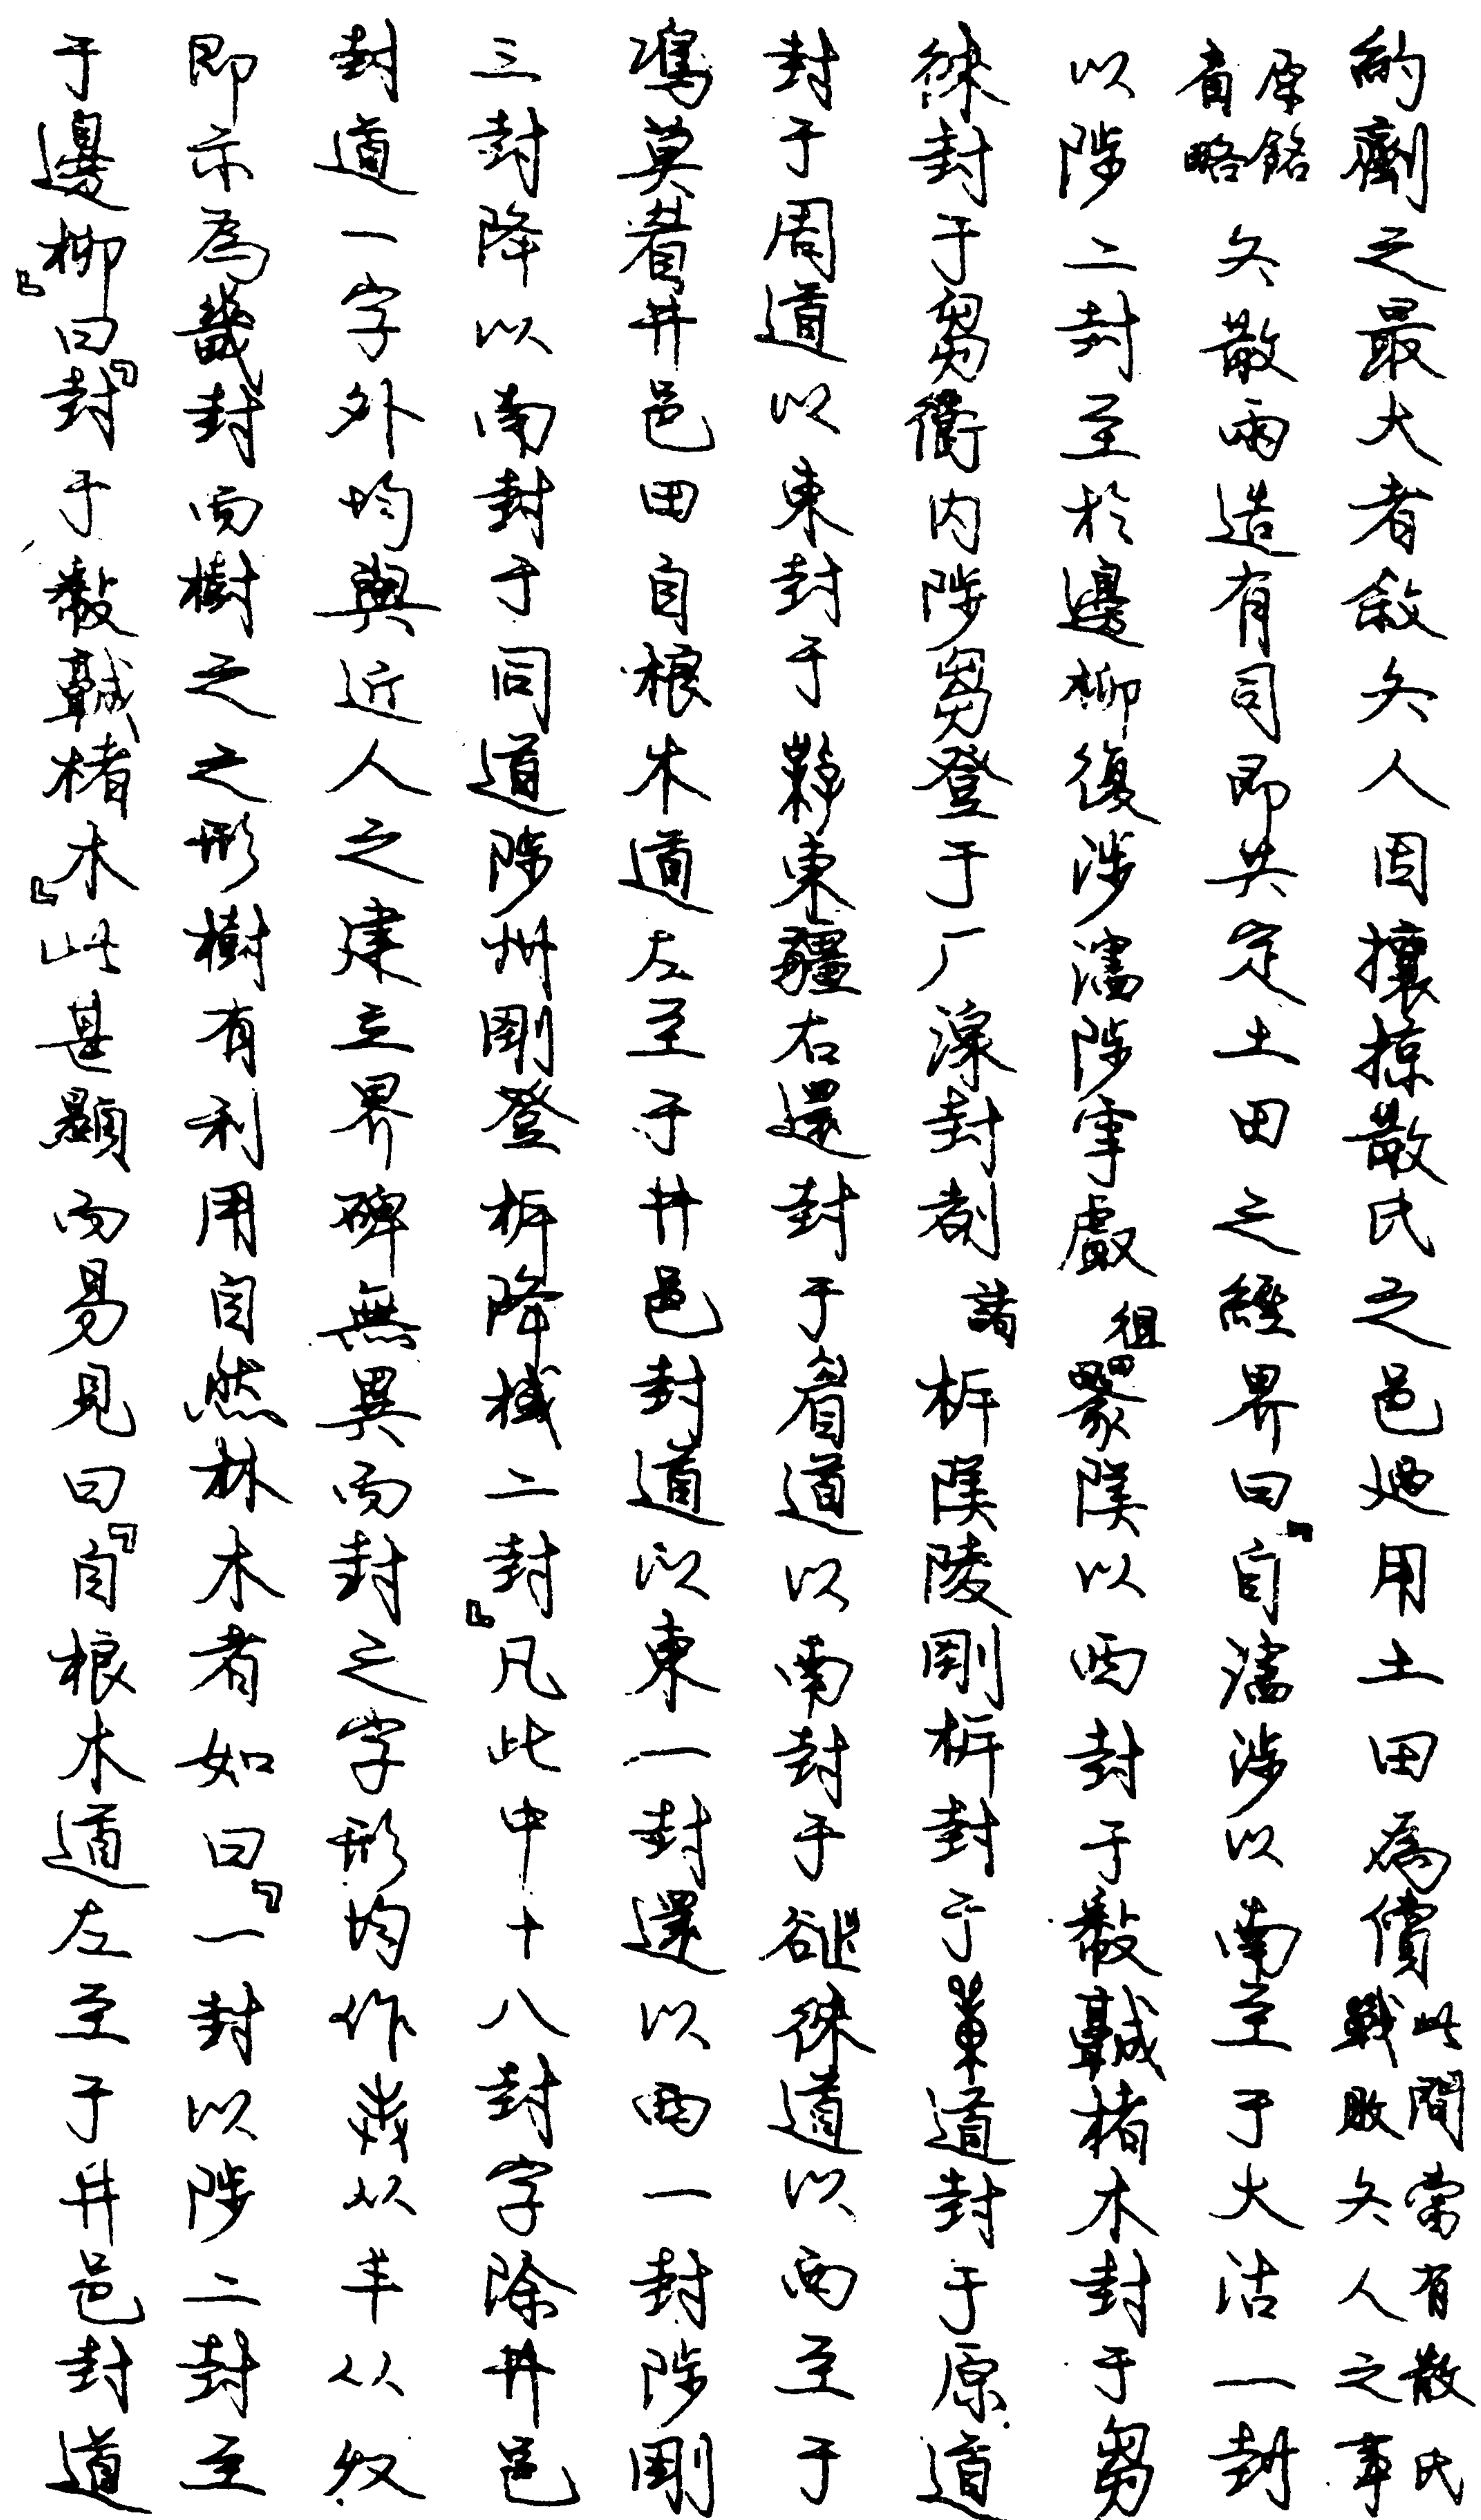 約劑之最大者敘夨人因攘掠散氏之邑迺用土田為償此間當有散氏戰敗夨人之事
原銘有略夨散兩造有司即共定土田之經界曰『自瀗涉以南至于大沽一封
以陟二封至於邊柳復涉瀗陟雩䖒𨛜㒸以西封于敽𩫨楮木封于芻
徠封于芻衜内陟芻登于厂湶封剒諸㭊陵剛㭊封于單道封于原道
封于周道以東封于𩫨東疆右還封于眉道以南封于𧯦徠道以西至于
𤞷莫眉井邑田自根木道左至于井邑封道以東一封還以西一封陟剛
三封降以南封于同道陟州剛登㭊降棫二封』凡此中十八封字除井邑
封道一字外均與近人之建立界碑無異而封之字形均作𡉚从丰从奴
即示為畿封而樹之之形樹有利用自然林木者如曰『一封以陟二封至
于邊柳』曰『封于敽𩫨楮木』此甚顯而易見曰『自根木道左至于井邑封道